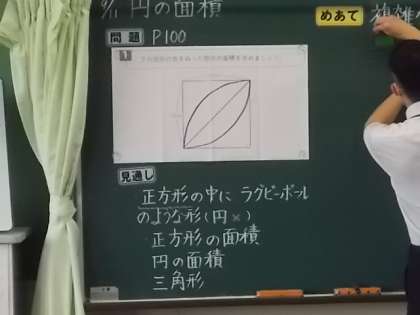 円の面積
めあて
複雑
問題 P100
1
見通し
正方形の中に ラグビーボール
のような形(円×)
正方形の面積
円の面積
三角形